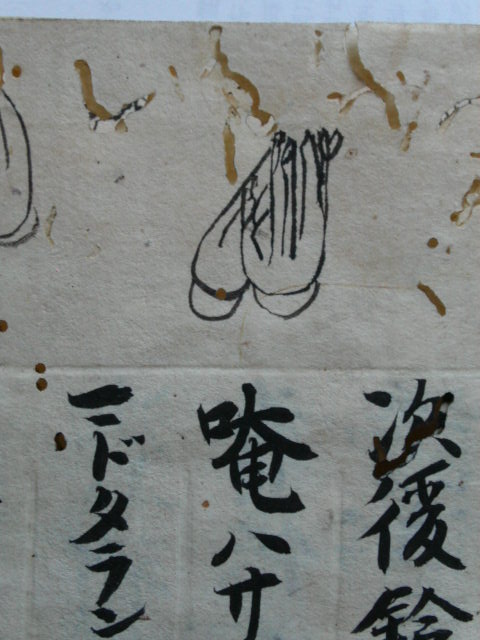 次後鈴
唵ハサ
ニドタラン